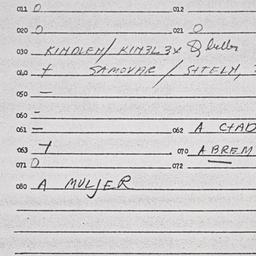 011 0 012
020 0 021 0
030 KINDLEM/KIM3L3X
040 + SAMOVAR / SITELN,
050 —
060 -
061 = 062 A CHAD
063 + 070 ABREM
071 0 072 —
080 A MULJER